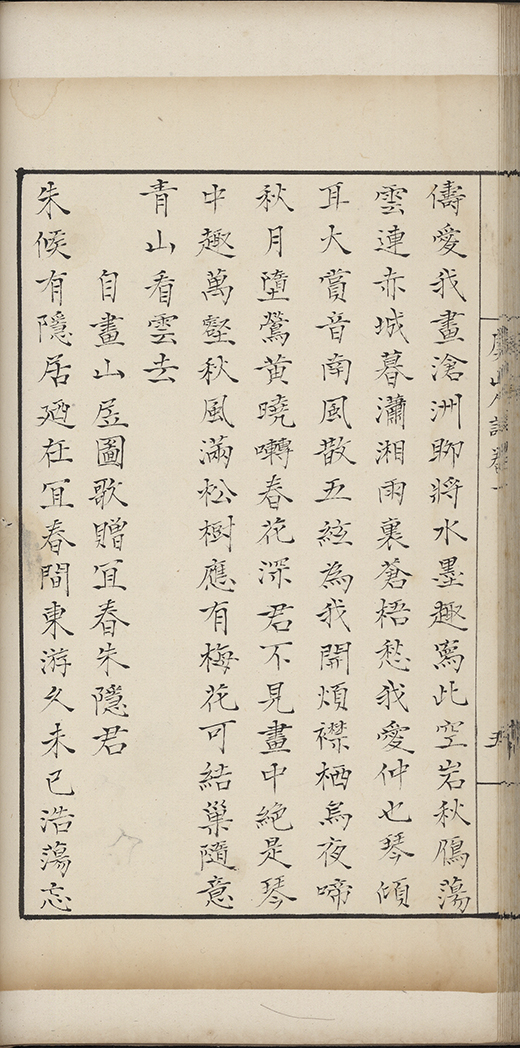 儔愛我畫滄洲聊將水墨趣寫此空岩秋鴈蕩
雲連赤城暮瀟湘雨裏蒼梧愁我愛仲也琴傾
耳大賞音南風散五絃為我開煩襟栖烏夜啼
秋月墮鶯黃曉囀春花深君不見畫中絶是琴
中趣萬壑秋風滿松樹應有梅花可結巢隨意
青山看雲去
自畫山居圖歌贈冝春朱隱君
朱候有隱居廼在冝春間東游久未已浩蕩忘
山人詩卷一